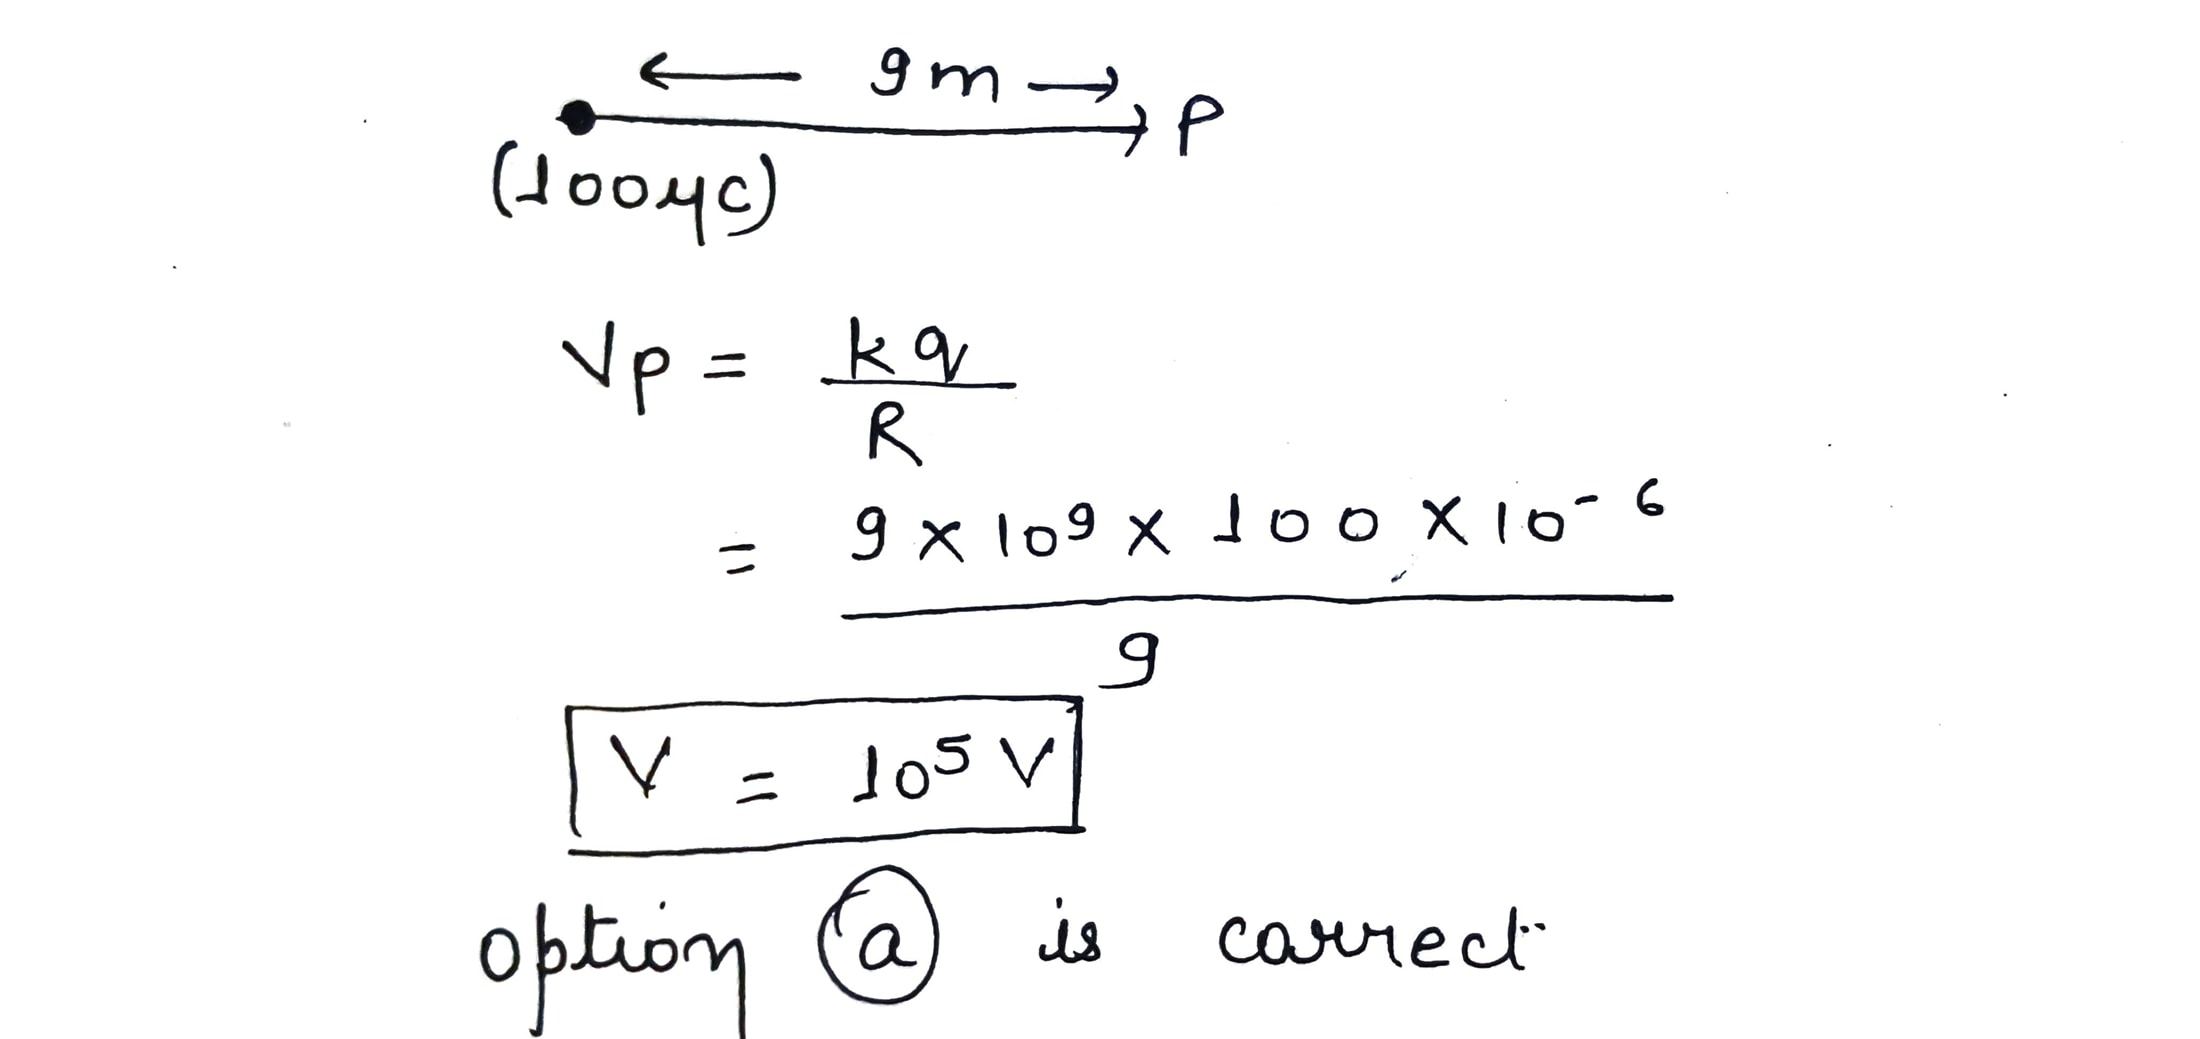 ← 9m →
P
(100μC)
Vp = kq
R
= 9 × 10⁹ × 100 × 10⁻⁶
9
V = 10⁵ V
option (a) is correct